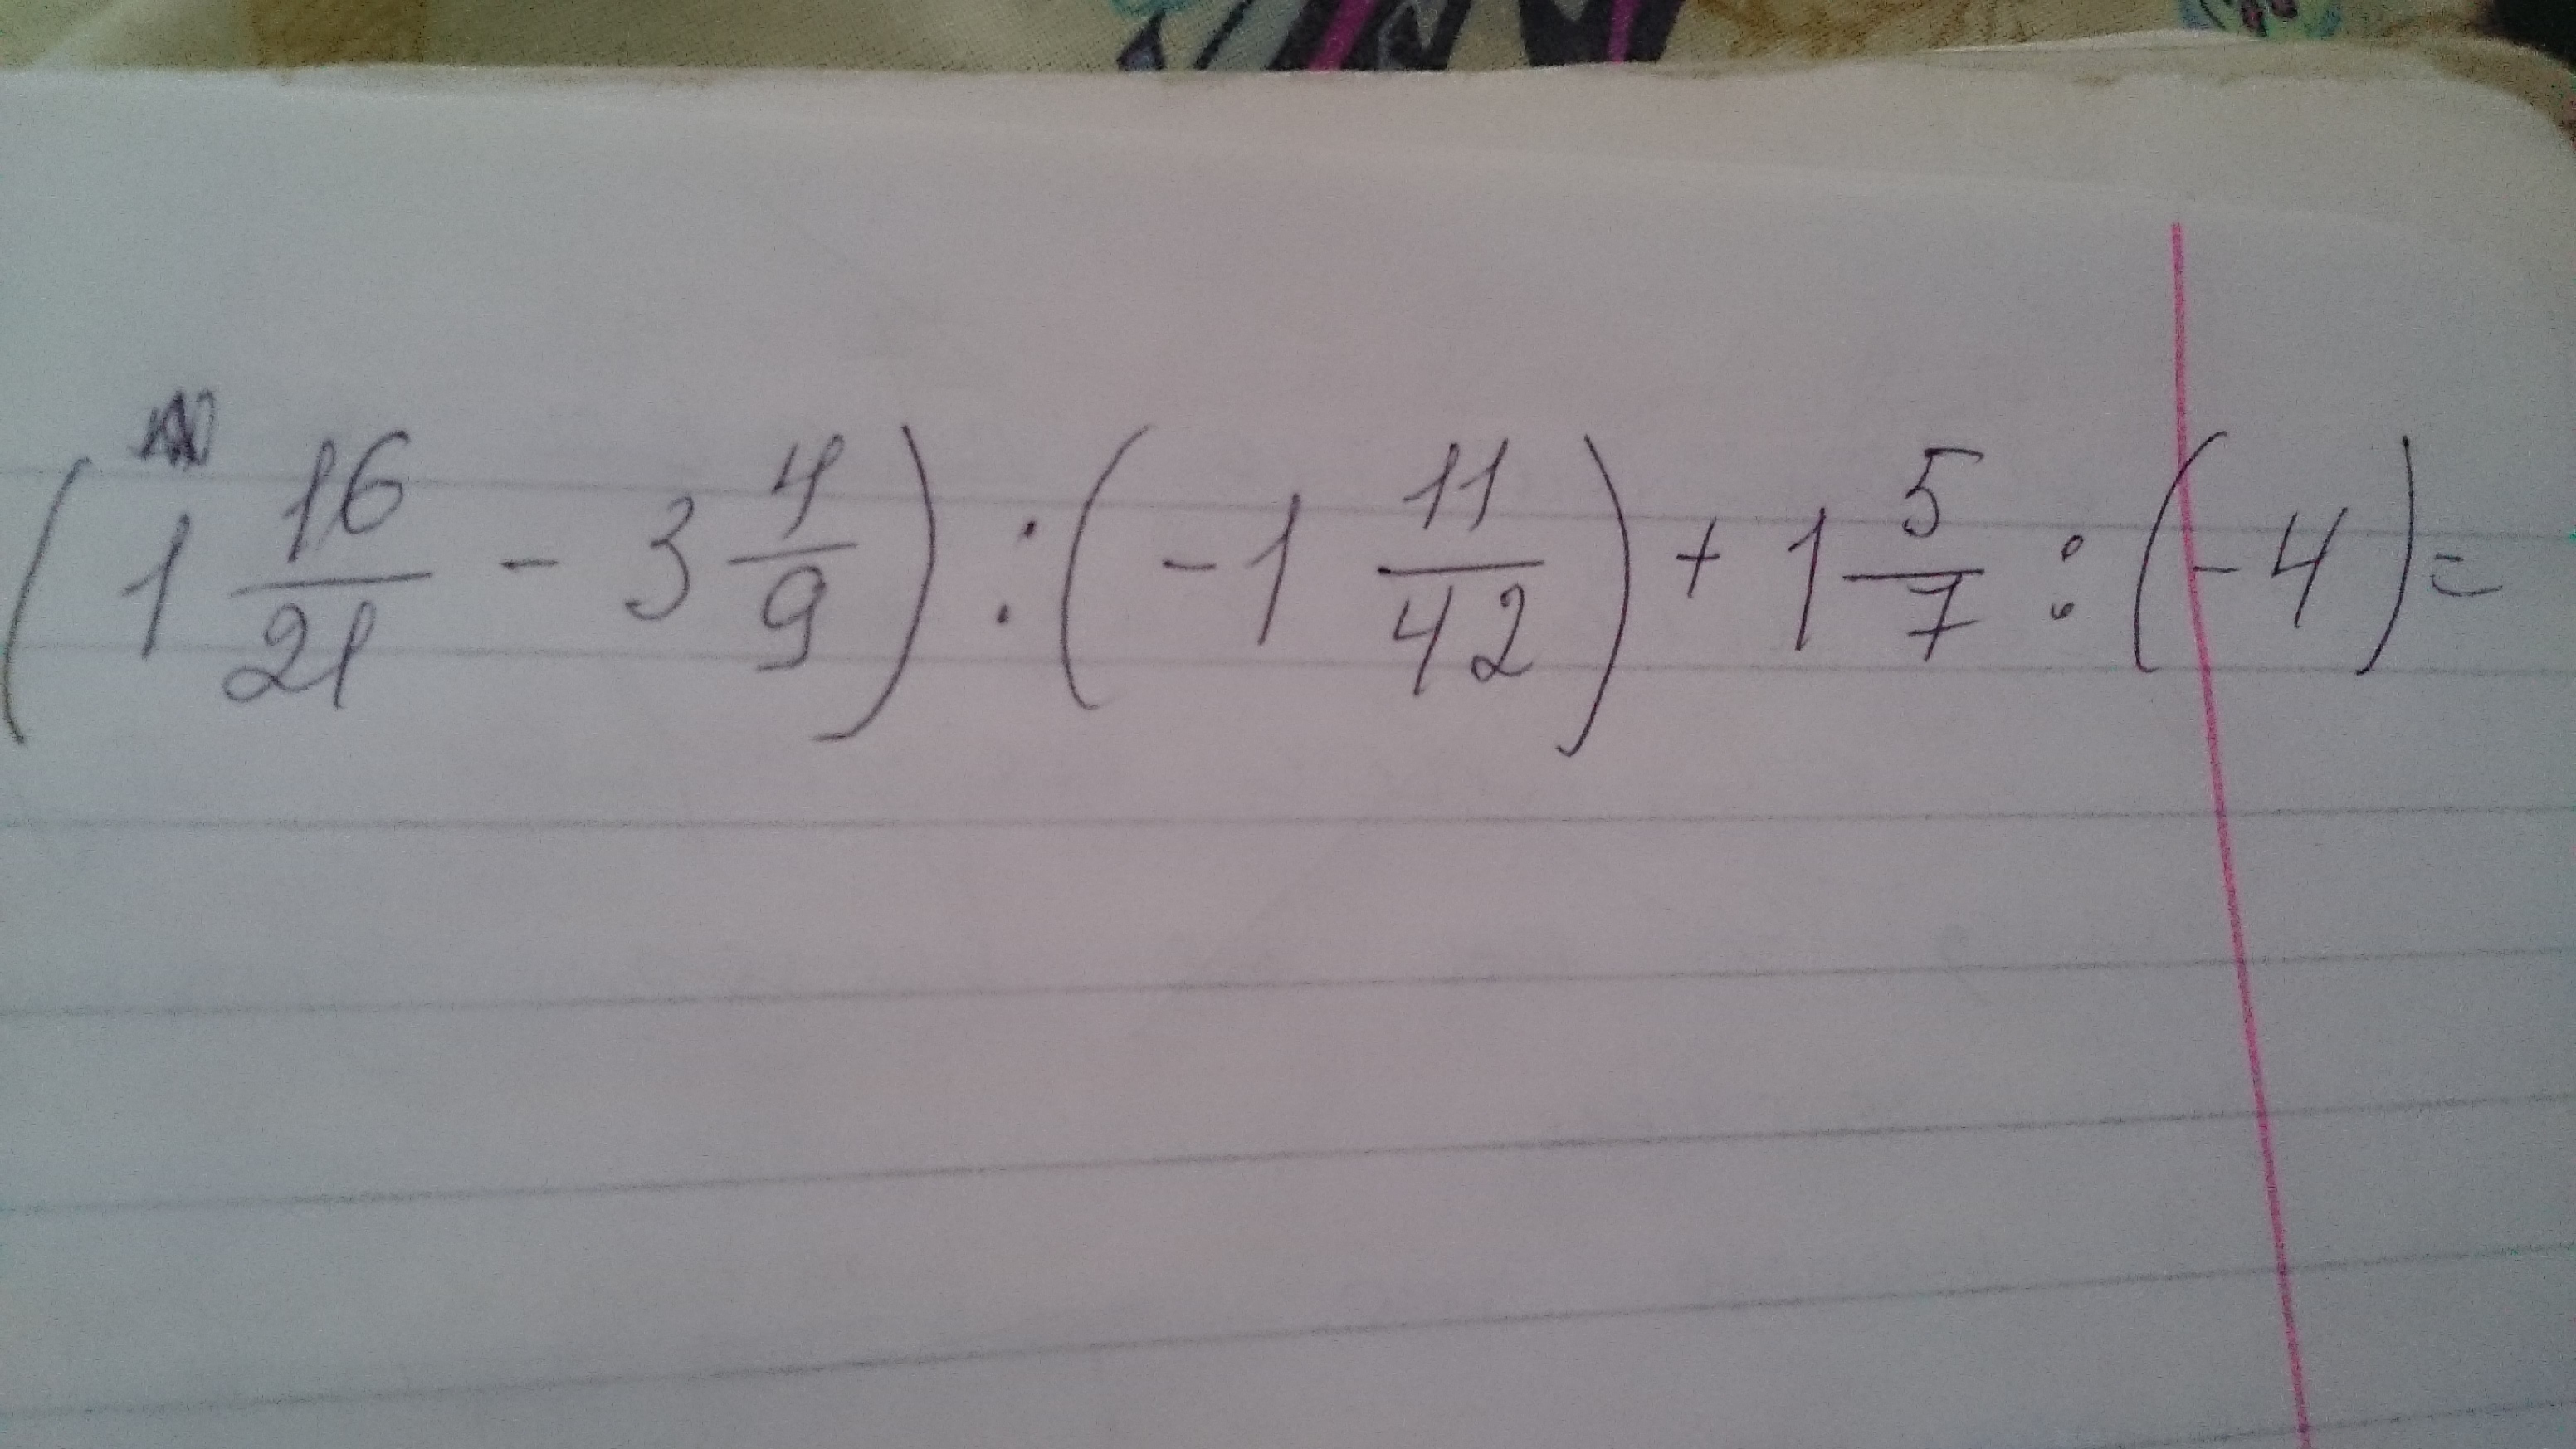 (1 16/21 - 3 4/9) : (-1 11/42) + 1 5/7 : (-4) =